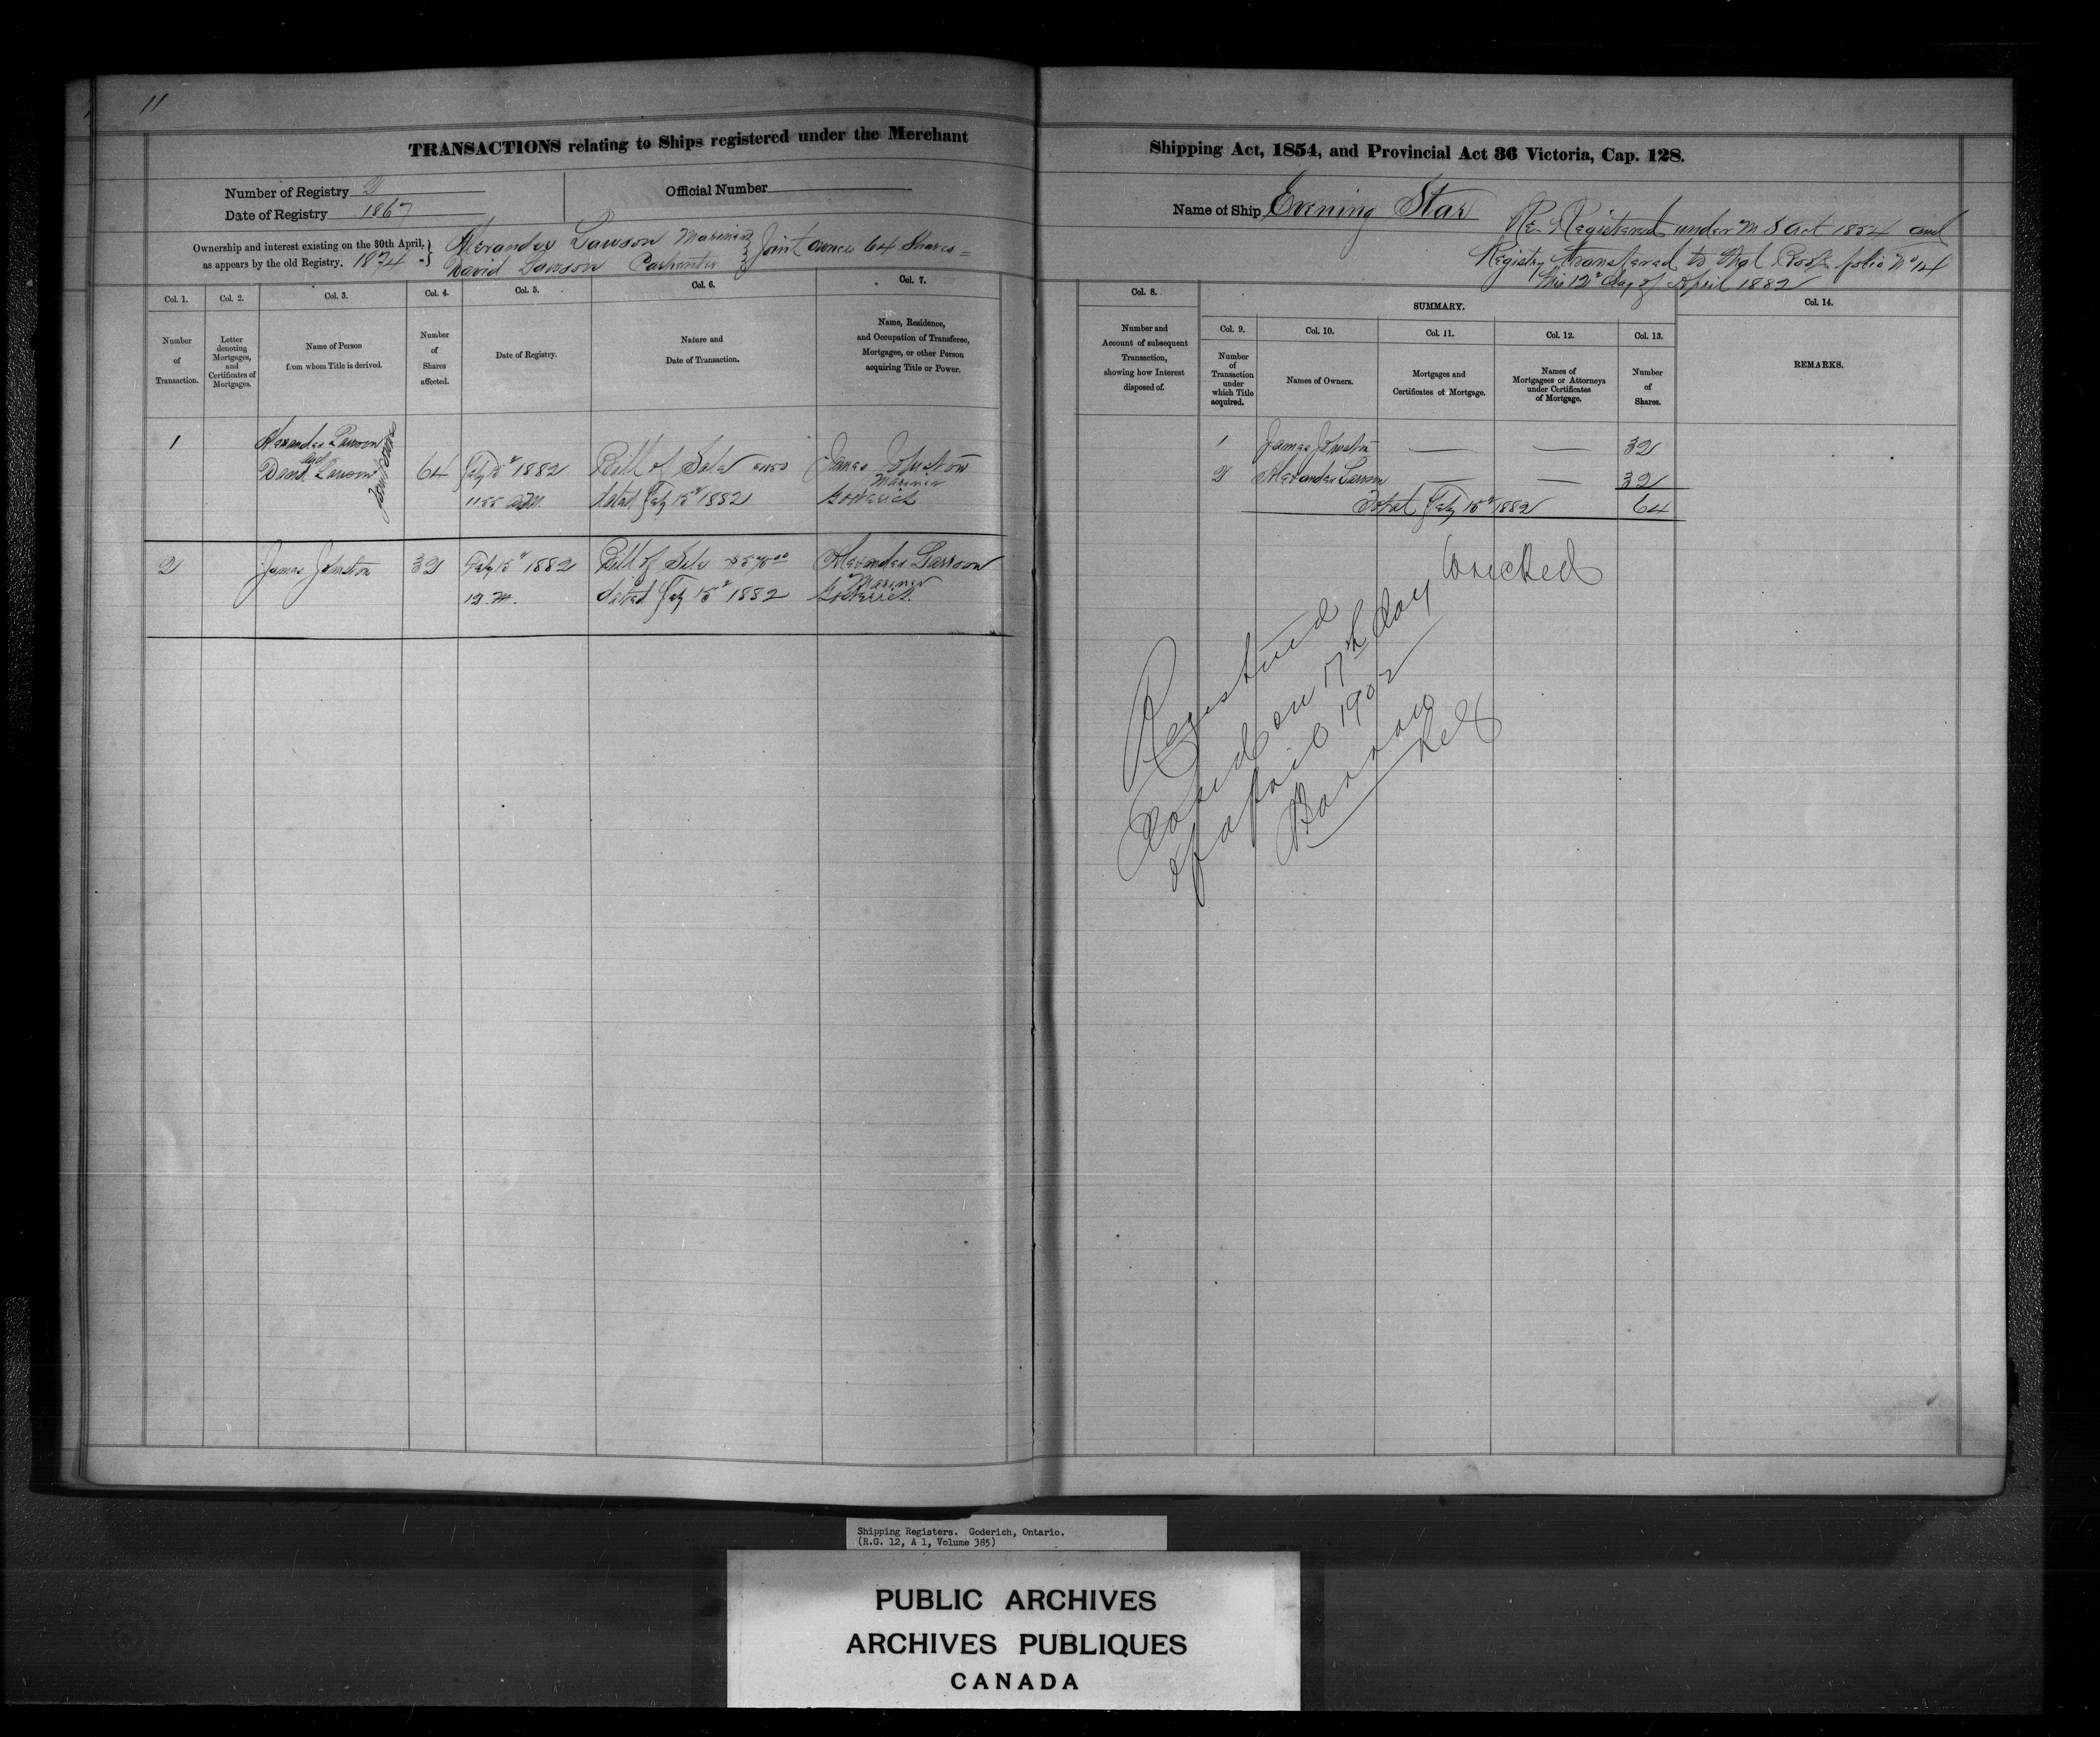 11
TRANSACTIONS relating to Ships registered under the Merchant
Number of Registry 2
Official Number
Date of Registry 1867
Ownership and interest existing on the 30th April,
as appears by the old Registry. 1874
Alexander Lawson Mariner
David Lawson Carpenter
Joint owners 64 Shares
Col. 1.
Number
of
Transaction.
Col. 2.
Letter
denoting
Mortgages,
and
Certificates of
Mortgages.
Col. 3.
Name of Person
from whom Title is derived.
Col. 4.
Number
of
Shares
affected.
Col. 5.
Date of Registry.
Col. 6.
Nature and
Date of Transaction.
Col. 7.
Name, Residence,
and Occupation of Transferee,
Mortgagee, or other Person
acquiring Title or Power.
1
Alexander Lawson
and
David Lawson
64
Feby 15th 1882
11.55 a.m.
Bill of Sale
dated Feby 15th 1882
James Johnston
Mariner
Goderich
2
James Johnston
32
Feby 15th 1882
12. M.
Bill of Sale
dated Feby 15th 1882
Alexander Lawson
Mariner
Goderich
Shipping Act, 1854, and Provincial Act 36 Victoria, Cap. 128.
Name of Ship Evening Star
Re-Registered under M S Act 1854 and
Registry transfered to that Book folio No 14
this 12th day of April 1882
Col. 8.
Number and
Account of subsequent
Transaction,
showing how Interest
disposed of.
SUMMARY.
Col. 9.
Number
of
Transaction
under
which Title
acquired.
Col. 10.
Names of Owners.
Col. 11.
Mortgages and
Certificates of Mortgage.
Col. 12.
Names of
Mortgagees or Attorneys
under Certificates
of Mortgage.
Col. 13.
Number
of
Shares.
Col. 14.
REMARKS.
1 James Johnston — — 32
2 Alexander Lawson — — 32
Total Feby 15th 1882 64
Wrecked
Registered
Closed on 17th day
of April 1902
Shipping Registers. Goderich, Ontario.
(R.G. 12, A 1, Volume 385)
PUBLIC ARCHIVES
ARCHIVES PUBLIQUES
CANADA